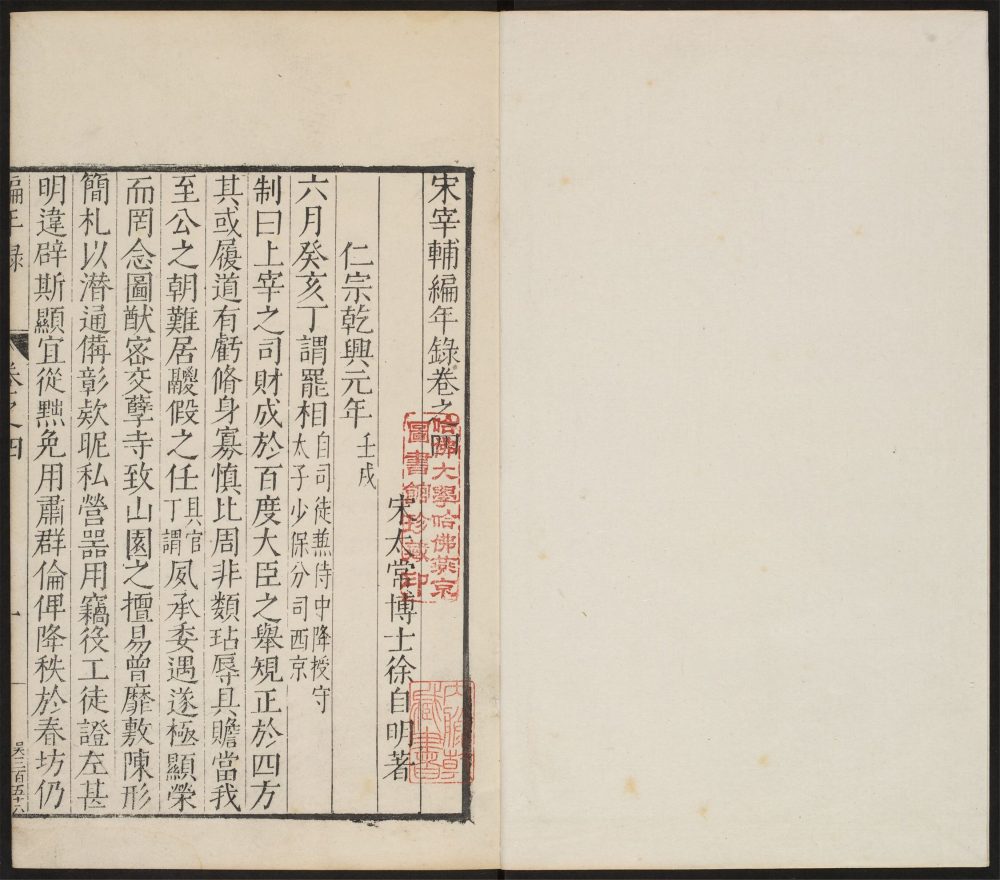 宋宰輔編年錄卷之四
宋太常博士徐自明著
仁宗乾興元年壬戌
六月癸亥丁謂罷相自司徒兼侍中降授守太子少保分司西京
制曰上宰之司財成於百度大臣之舉規正於四方
其或履道有虧脩身寡慎比周非類玷辱具瞻當我
至公之朝難居爕假之任具官丁謂夙承委遇遂極顯榮
而罔念圖猷密交孽寺致山園之擅易曾靡敷陳形
簡札以潛通備彰欵昵私營器用竊役工徒證左甚
明違辟斯顯宜從黜免用肅群倫俾降秩於春坊仍
編年録
卷之四
一
吳三百五十六
哈佛大學哈佛燕京
圖書館珍藏印